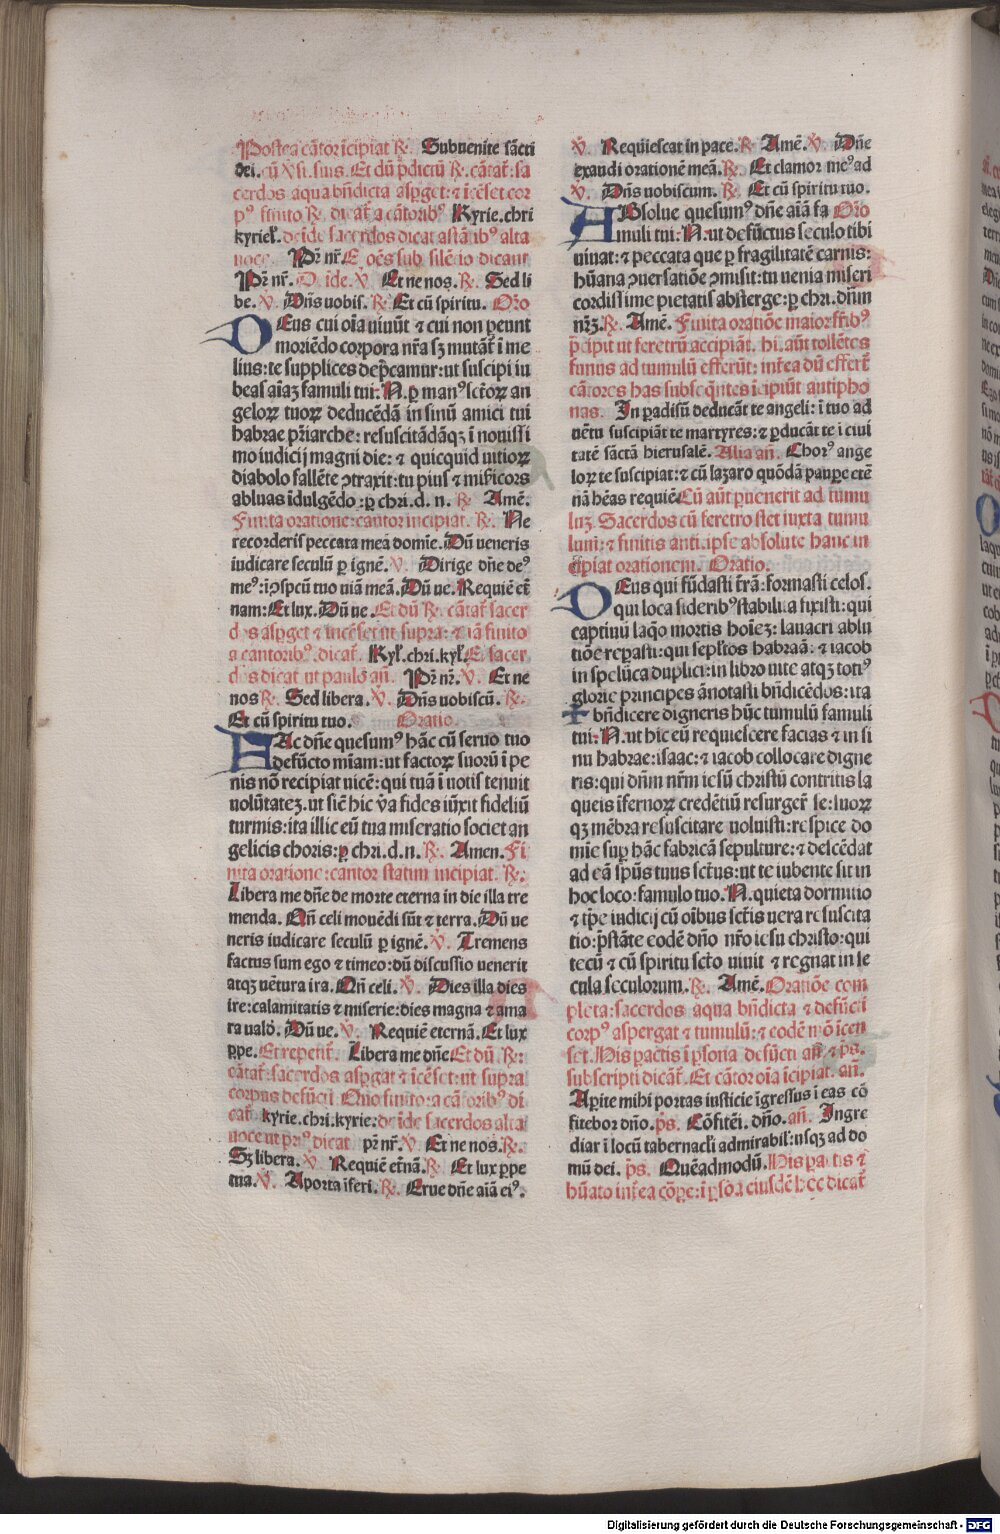 Postea cãtor ĩcipiat ℟. Subuenite sãcti
dei. cũ ℣si. suis. Et dũ p̃dictũ ℟. cãtat̃: sa
cerdos aqua bñdicta asp̱get: ⁊ ĩcẽset cor
pꝰ finito ℟. dicat̃ a cãtoribꝰ Kyrie. chri
kyriel̃. deĩde sacerdos dicat astãtibꝰ alta
uoce Pr̃ nr̃ Et oẽs sub silẽtio dicant
Pr̃ nr̃. Deide. ℣. Et ne nos. ℟. Sed li
be. ℣. Dñs uobis. ℟. Et cũ spiritu. Oro
DEus cui oĩa uiuũt ⁊ cui non p̱eunt
moriẽdo corpora nr̃a sꝫ mutãt̃ ĩ me
lius: te supplices dep̃camur: ut suscipi iu
beas aĩaꝫ famuli tui: N. p̱ manꝰ sctõꝝ an
geloꝝ tuoꝝ deducẽdã in sinũ amici tui
habrae pr̃iarche: resuscitãdãqꝫ ĩ nouissi
mo iudicij magni die: ⁊ quicquid uitioꝝ
diabolo fallẽte ꝯtraxit: tu pius ⁊ mi̇sericors
abluas ĩdulgẽdo: p̱ chri. d. n. ℟. Amẽ.
Finita oratione: cantor incipiat. ℟. Ne
recorderis peccata mea domĩe. Dũ ueneris
iudicare seculũ p̱ ignẽ. ℣. Dirige dñe deꝰ
meꝰ: ĩ ꝯspcũ tuo uiã meã. Dũ ue. Requiẽ et̃
nam: Et lux. Dũ ue. Et dũ ℟. cãtat̃ sacer
dos asp̱get ⁊ incẽset ut supra: ⁊ iã finito
a cantoribꝰ. dicat̃. Kyl̃. chri. kyl̃ Et sacer
dos dicat ut paulo añ. Pr̃ nr̃. ℣. Et ne
nos ℟. Sed libera. ℣. Dñs uobiscũ. ℟.
Et cũ spiritu tuo. Oratio.
HAc dñe quesumꝰ hãc cũ seruo tuo
defũcto mĩam: ut factoꝝ suorũ ĩ pe
nis nõ recipiat uicẽ: qui tuã ĩ uotis tenuit
uolũtateꝫ. ut sic̃ hic ṽa fides iũxit fideliũ
turmis: ita illic eũ tua miseratio societ an
gelicis choris: p̱ chri. d. n. ℟. Amen. Fi
nita oratione: cantor statim incipiat. ℟.
Libera me dñe de morte eterna in die illa tre
menda. Qñ celi mouẽdi sũt ⁊ terra. Dũ ue
neris iudicare seculũ p̱ ignẽ. ℣. Tremens
factus sum ego ⁊ timeo: dũ discussio uenerit
atqꝫ uẽtura ira. Qñ celi. ℣. Dies illa dies
ire: calamitatis ⁊ miserie: dies magna ⁊ ama
ra ualde. Dũ ue. ℣. Requiẽ eternã. Et lux
p̱pe. Et repetit̃. Libera me dñe Et dũ. ℟:
cãtat̃: sacerdos asp̱gat ⁊ ĩcẽset: ut supra
corpus defũcti. Quo finito: a cãtoribꝰ di
cat̃. kyrie. chri. kyrie: deĩde sacerdos alta
uoce ut priꝰ dicat pr̃ nr̃. ℣. Et ne nos. ℟.
Sꝫ libera. ℣. Requiẽ et̃nã. ℟. Et lux p̱pe
tua. ℣. A porta ĩferi. ℟. Erue dñe aĩã eiꝰ.
℣. Requiescat in pace. ℟. Amẽ. ℣. Dñe
exaudi orationẽ meã. ℟. Et clamor meꝰ ad
℣. Dñs uobiscum. ℟. Et cũ spiritu tuo.
ABsolue quesumꝰ dñe aĩã fa Oro
muli tui: N. ut defũctus seculo tibi
uiuat: ⁊ peccata que p̱ fragilitatẽ carnis:
hũana ꝯuersatiõe ꝯmisit: tu uenia miseri
cordissime pietatis absterge: p̱ chri. dñm
nr̃ꝫ. ℟. Amẽ. Finita oratiõe maior fr̃ibꝰ
p̃cipit ut feretrũ accipiãt. hi. aũt tollẽtes
funus ad tumulũ efferũt: int̃ea dũ effert̃
cãtores has subseq̃ntes ĩcipiũt antipho
nas. In p̱adisũ deducãt te angeli: ĩ tuo ad
uẽtu suscipiãt te martyres: ⁊ p̱ducãt te ĩ ciui
tatẽ sãctã hierusalẽ. Alia añ. Chorꝰ ange
loꝝ te suscipiat: ⁊ cũ lazaro quõdã paup̱e etẽ
nã hẽas requiẽ Cũ aũt p̱uenerit ad tumu
luꝫ Sacerdos cũ feretro stet iuxta tumu
lum: ⁊ finitis anti. ipse absolute hanc in
cipiat orationem. Oratio.
DEus qui fũdasti t̃rã: formasti celos.
qui loca sideribꝰ stabilita fixisti: qui
captiuũ laq̃o mortis hoĩeꝫ: lauacri ablu
tiõe rep̱asti: qui sepl̃tos habraã: ⁊ iacob
in spelũca duplici: in libro uite atqꝫ totiꝰ
glorie principes ãnotasti bñdicẽdos: ita
✠ bñdicere digneris hũc tumulũ famuli
tui: N. ut hic eũ requiescere facias ⁊ in si
nu habrae: isaac: ⁊ iacob collocare digne
ris: qui dñm nr̃m iesũ christũ contritis la
queis ĩfernoꝝ credẽtiũ resurger̃ se: suoꝝ
qꝫ mẽbra resuscitare uoluisti: respice do
mĩe sup̱ hãc fabricã sepulture: ⁊ descẽdat
ad eã sp̃us tuus sctũs: ut te iubente sit in
hoc loco: famulo tuo. N. quieta dormitio
⁊ tp̃e iudicij cũ oĩbus sctĩs uera resuscita
tio: p̃stãte eodẽ dño nr̃o iesu christo: qui
tecũ ⁊ cũ spiritu sctõ uiuit ⁊ regnat in se
cula seculorum. ℟. Amẽ. Oratiõe com
pleta: sacerdos aqua bñdicta ⁊ defũcti
corpꝰ aspergat ⁊ tumulũ: ⁊ eodẽ mõ ĩcen
set. His p̱actis ĩ p̱sona defũcti añ ⁊ p̃s.
subscripti dicãt̃. Et cãtor oĩa ĩcipiat. añ.
Aperite mihi portas iusticie ĩgressus ĩ eas cõ
fitebor dño. p̃s. Cõfitẽi. dño. añ. Ingre
diar ĩ locũ tabernacl̃i admirabil̃: usqꝫ ad do
mũ dei. p̃s. Quẽadmodũ. His p̱actis ⁊
hũato int̃ea cõrpe: ĩ p̱sõa eiusdẽ hec dicat̃
Digitalisierung gefördert durch die Deutsche Forschungsgemeinschaft - DFG